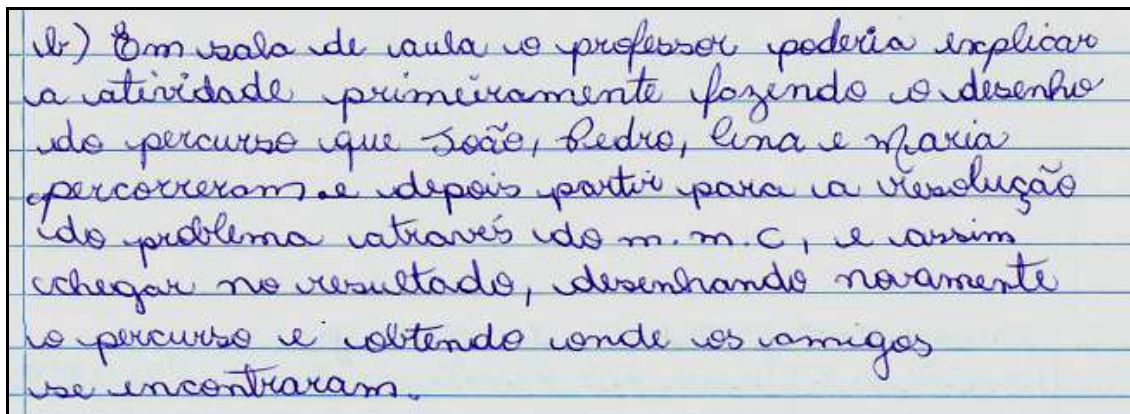 b) Em sala de aula o professor poderia explicar
a atividade primeiramente fazendo o desenho
do percurso que João, Pedro, Ana e Maria
percorreram e depois partir para a resolução
do problema através do m.m.c, e assim
chegar no resultado, desenhando novamente
o percurso e obtendo onde os amigos
se encontraram.